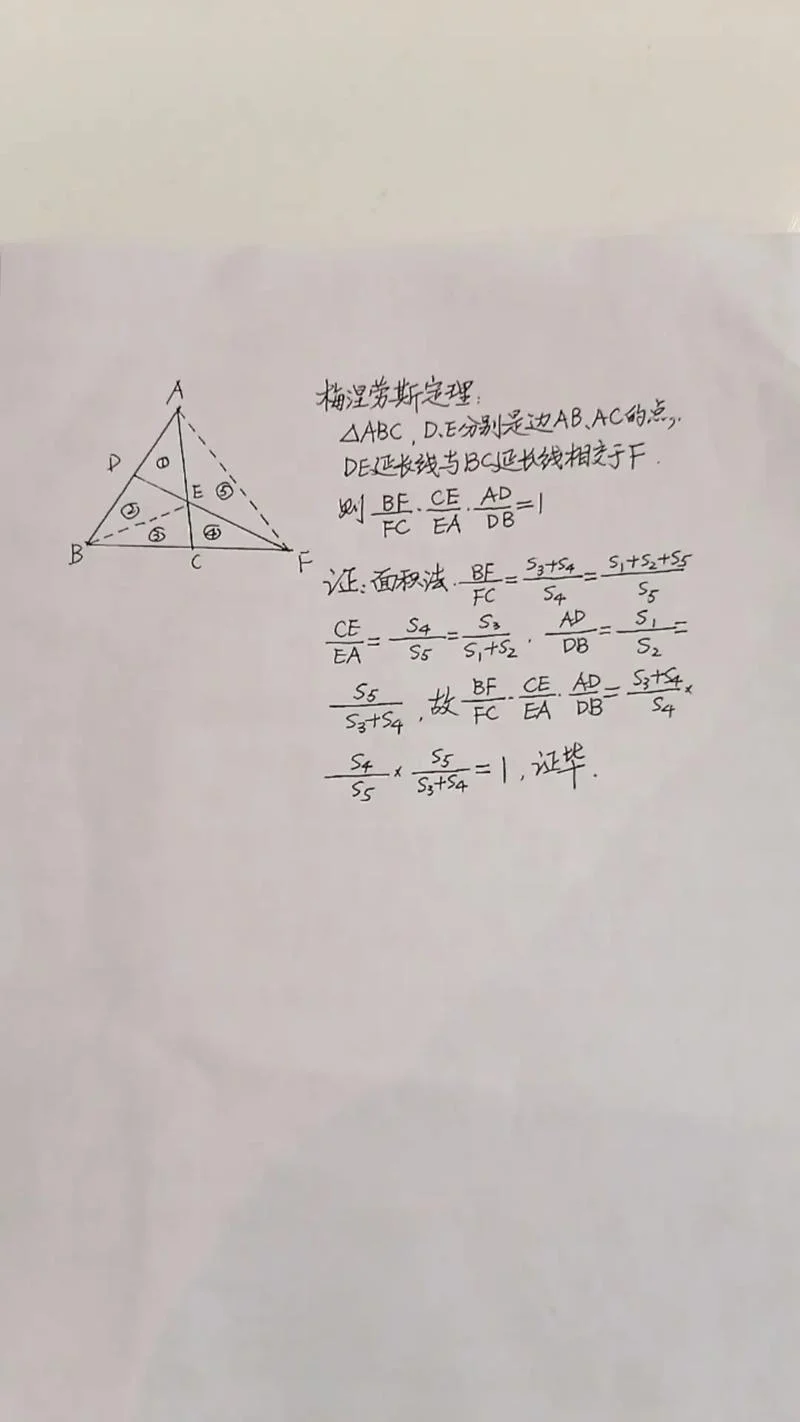 A
D
①
E
⑤
②
③
④
B
C
F
梅涅劳斯定理:
△ABC, D、E分别是边AB、AC的点,
DE延长线与BC延长线相交于F.
则 BF/FC · CE/EA · AD/DB = 1
证: 面积法. BF/FC = (S₃+S₄)/S₄ = (S₁+S₂+S₅)/S₅
CE/EA = S₄/S₅ = S₃/(S₁+S₂), AD/DB = S₁/S₂ =
S₅/(S₃+S₄), 故 BF/FC · CE/EA · AD/DB = (S₃+S₄)/S₄ ×
S₄/S₅ × S₅/(S₃+S₄) = 1, 证毕.